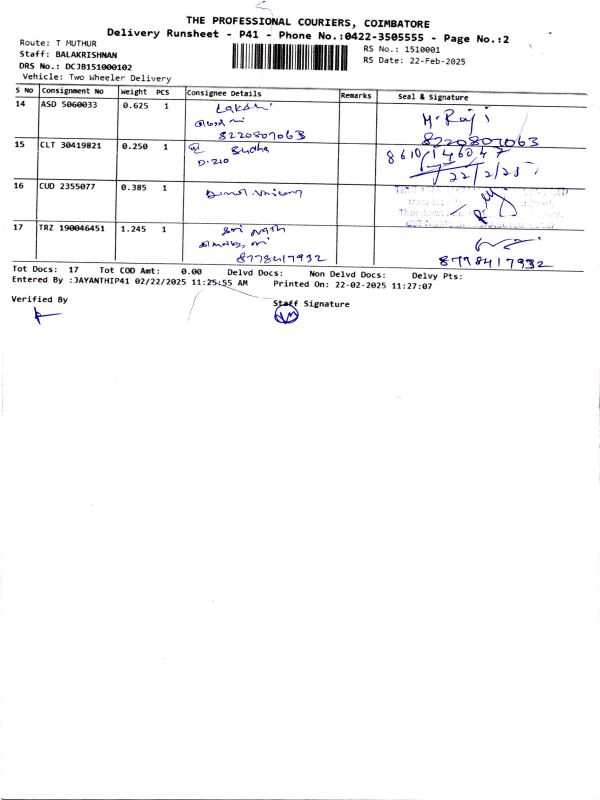 THE PROFESSIONAL COURIERS, COIMBATORE
Delivery Runsheet - P41 - Phone No.:0422-3505555 - Page No.:2
Route: T MUTHUR
RS No.: 1510001
Staff: BALAKRISHNAN
RS Date: 22-Feb-2025
DRS No.: DCJB151000102
Vehicle: Two Wheeler Delivery
S No Consignment No Weight PCS Consignee Details Remarks Seal & Signature
14 ASD 5060033 0.625 1 Lakshmi M. Raji
8220807063 8220807063
15 CLT 30419821 0.250 1 Sudha 8610146047
D.210 22/2/25
16 CUD 2355077 0.385 1
17 TRZ 190046451 1.245 1 Sri
8778417932 8778417932
Tot Docs: 17 Tot COD Amt: 0.00 Delvd Docs: Non Delvd Docs: Delvy Pts:
Entered By :JAYANTHIP41 02/22/2025 11:25:55 AM Printed On: 22-02-2025 11:27:07
Verified By Staff Signature